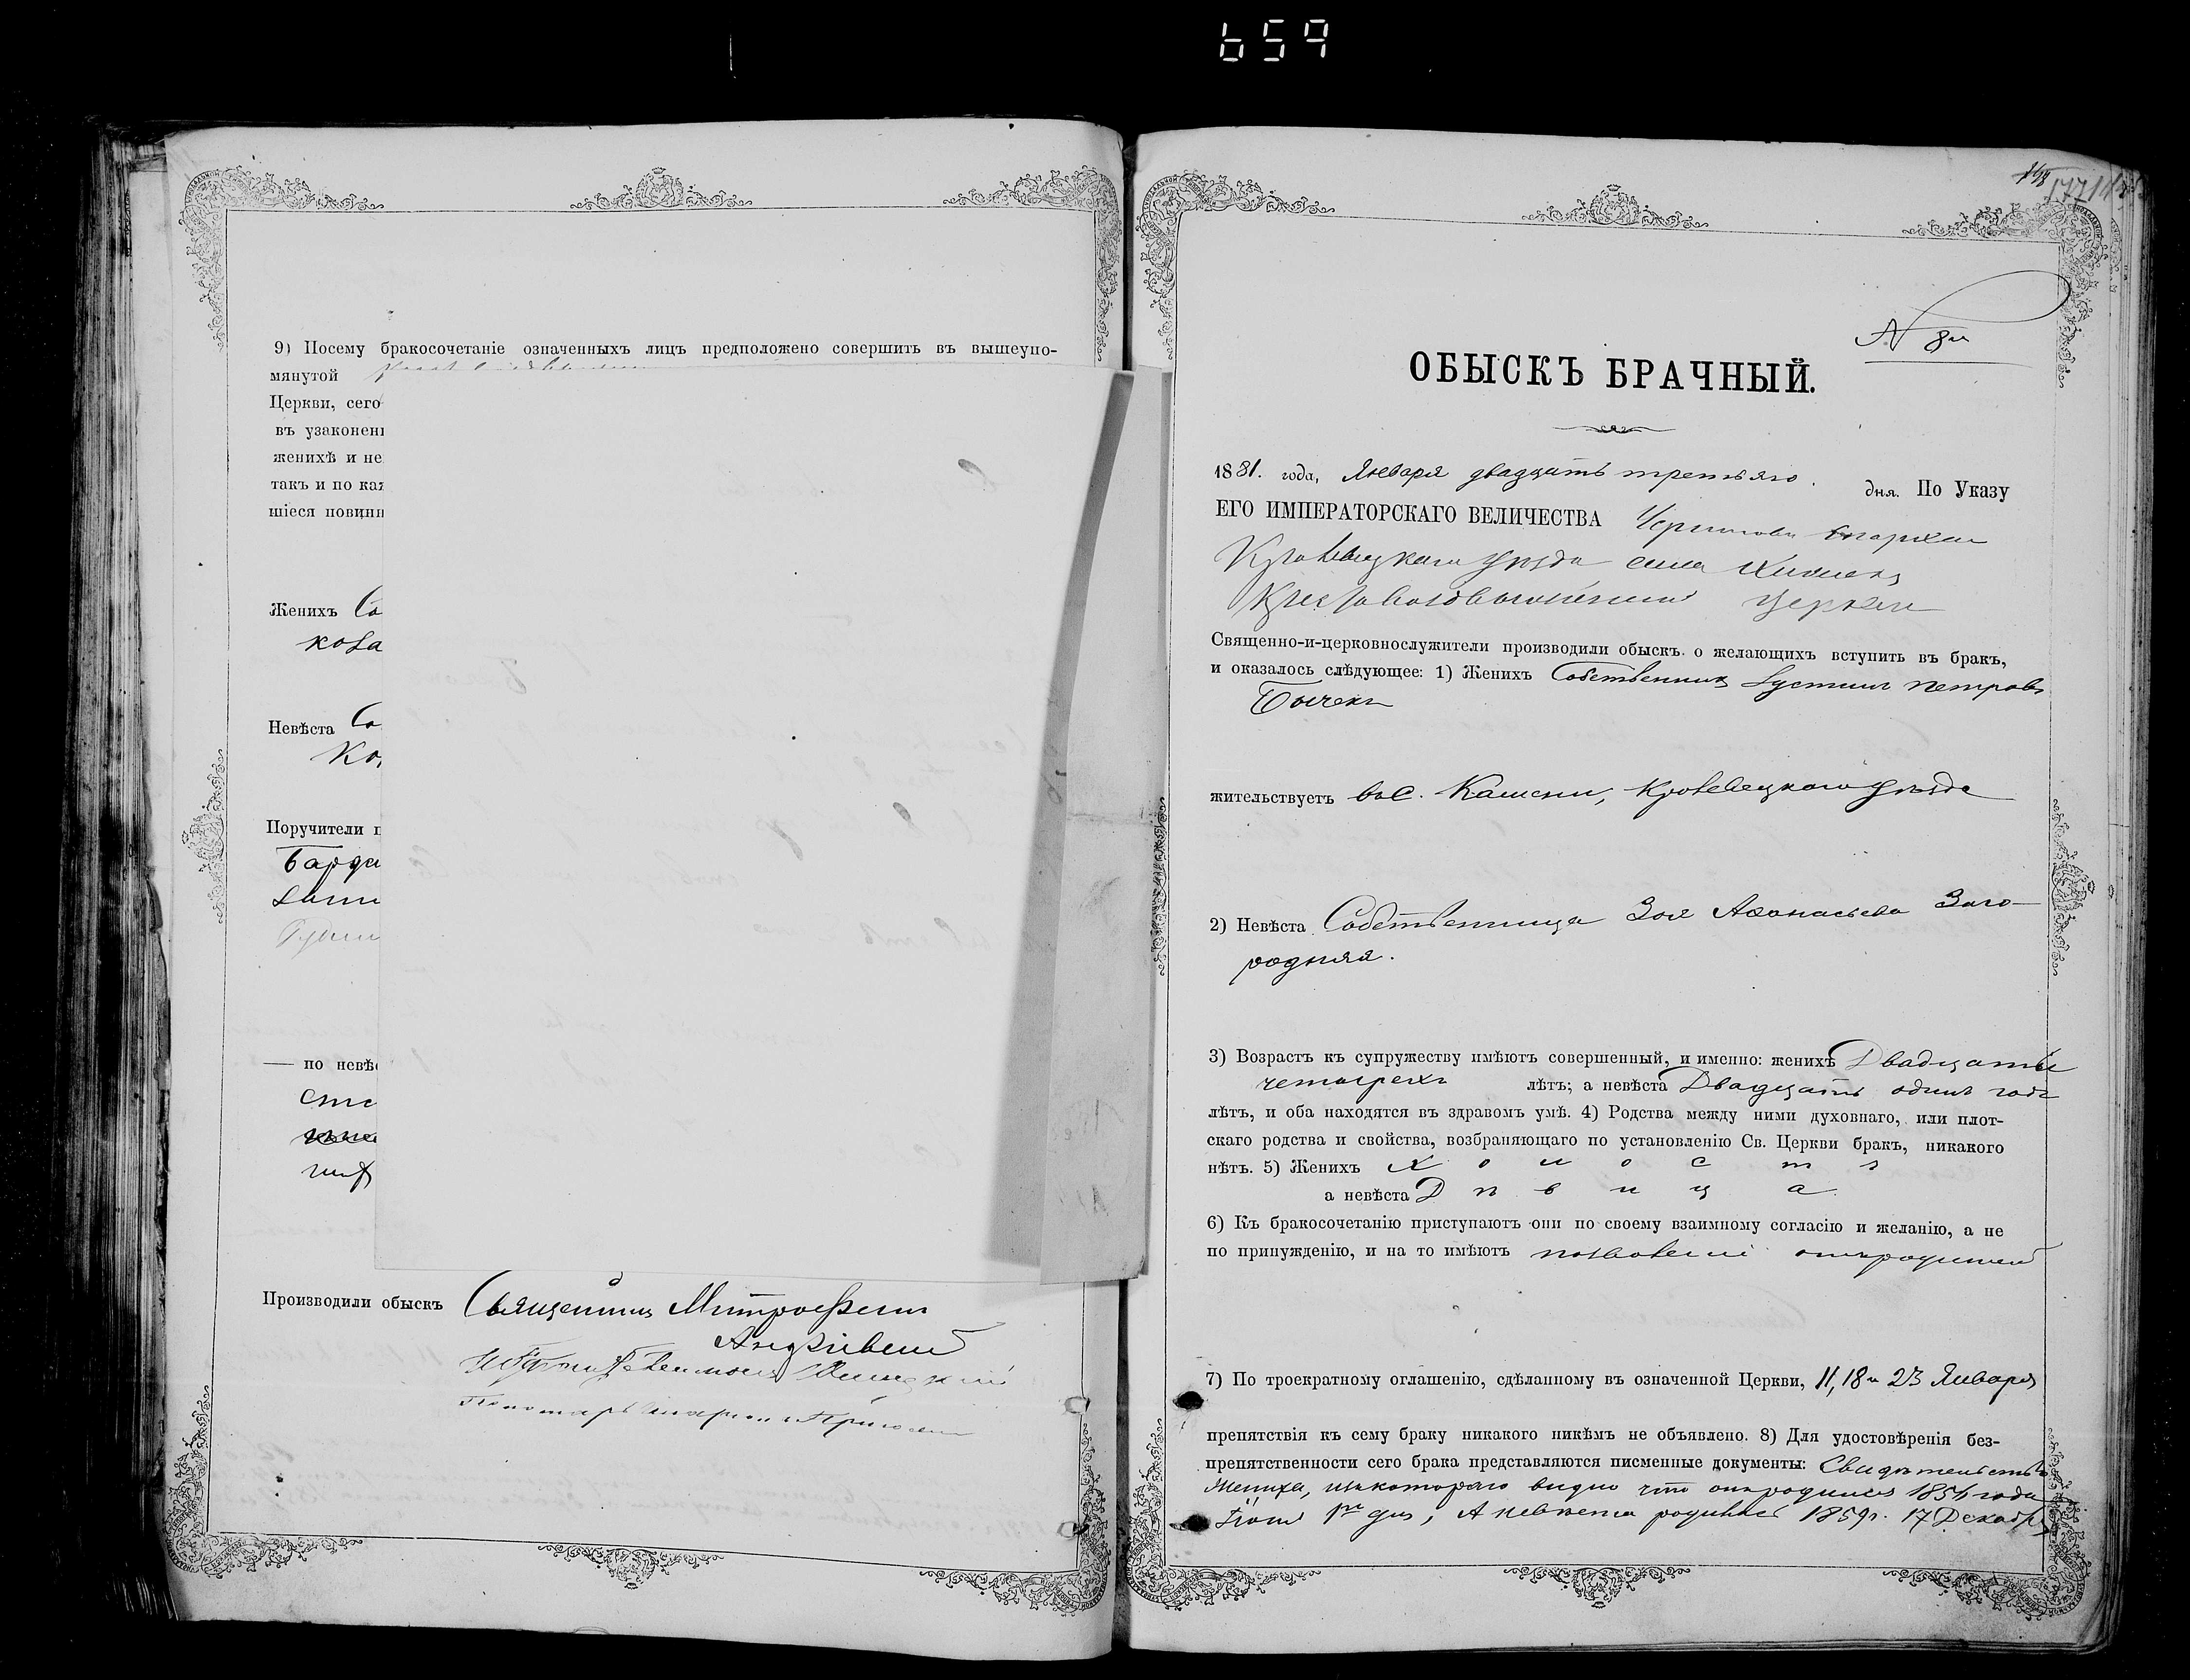 659
9) Посему бракосочетаніе означенныхъ лицъ предположено совершить въ вышеупо-
мянутой
Церкви, сего
въ узаконен
женихѣ и не
такъ и по ка
шіеся повинн
Женихъ Со
коза
Невѣста Со
Ко
Поручители п
Барда
— по невѣ
Производили обыскъ Священникъ Митрофанъ
177
N 8й
ОБЫСКЪ БРАЧНЫЙ.
1881. года, Января двадцать третьяго. дня. По Указу
ЕГО ИМПЕРАТОРСКАГО ВЕЛИЧЕСТВА Чернигов Епархіи
Кролевецкаго уѣзда села
Крестовоздвиженской церкви
Священно-и-церковнослужители производили обыскъ о желающихъ вступить въ бракъ,
и оказалось слѣдующее: 1) Женихъ Собственникъ Іустинъ Петровъ
жительствуетъ въ с. Камени, Кролевецкаго уѣзда
2) Невѣста Собственница Зоя Аѳанасьева Заго-
родняя.
3) Возрастъ къ супружеству имѣютъ совершенный, и именно: женихъ Двадцать
четырехъ лѣтъ; а невѣста Двадцать одинъ годъ
лѣтъ, и оба находятся въ здравомъ умѣ. 4) Родства между ними духовнаго, или плот-
скаго родства и свойства, возбраняющаго по установленію Св. Церкви бракъ, никакого
нѣтъ. 5) Женихъ Холостъ
а невѣста Дѣвица
6) Къ бракосочетанію приступаютъ они по своему взаимному согласію и желанію, а не
по принужденію, и на то имѣютъ позволеніе отъ родителей
7) По троекратному оглашенію, сдѣланному въ означенной Церкви, 11, 18 и 23 Января
препятствія къ сему браку никакого никѣмъ не объявлено. 8) Для удостовѣренія без-
препятственности сего брака представляются писменные документы: Свидѣтельство
Жениха, изъ котораго видно что онъ родился года
1го дня, А невѣста родилась 1859г. 17 Декабря